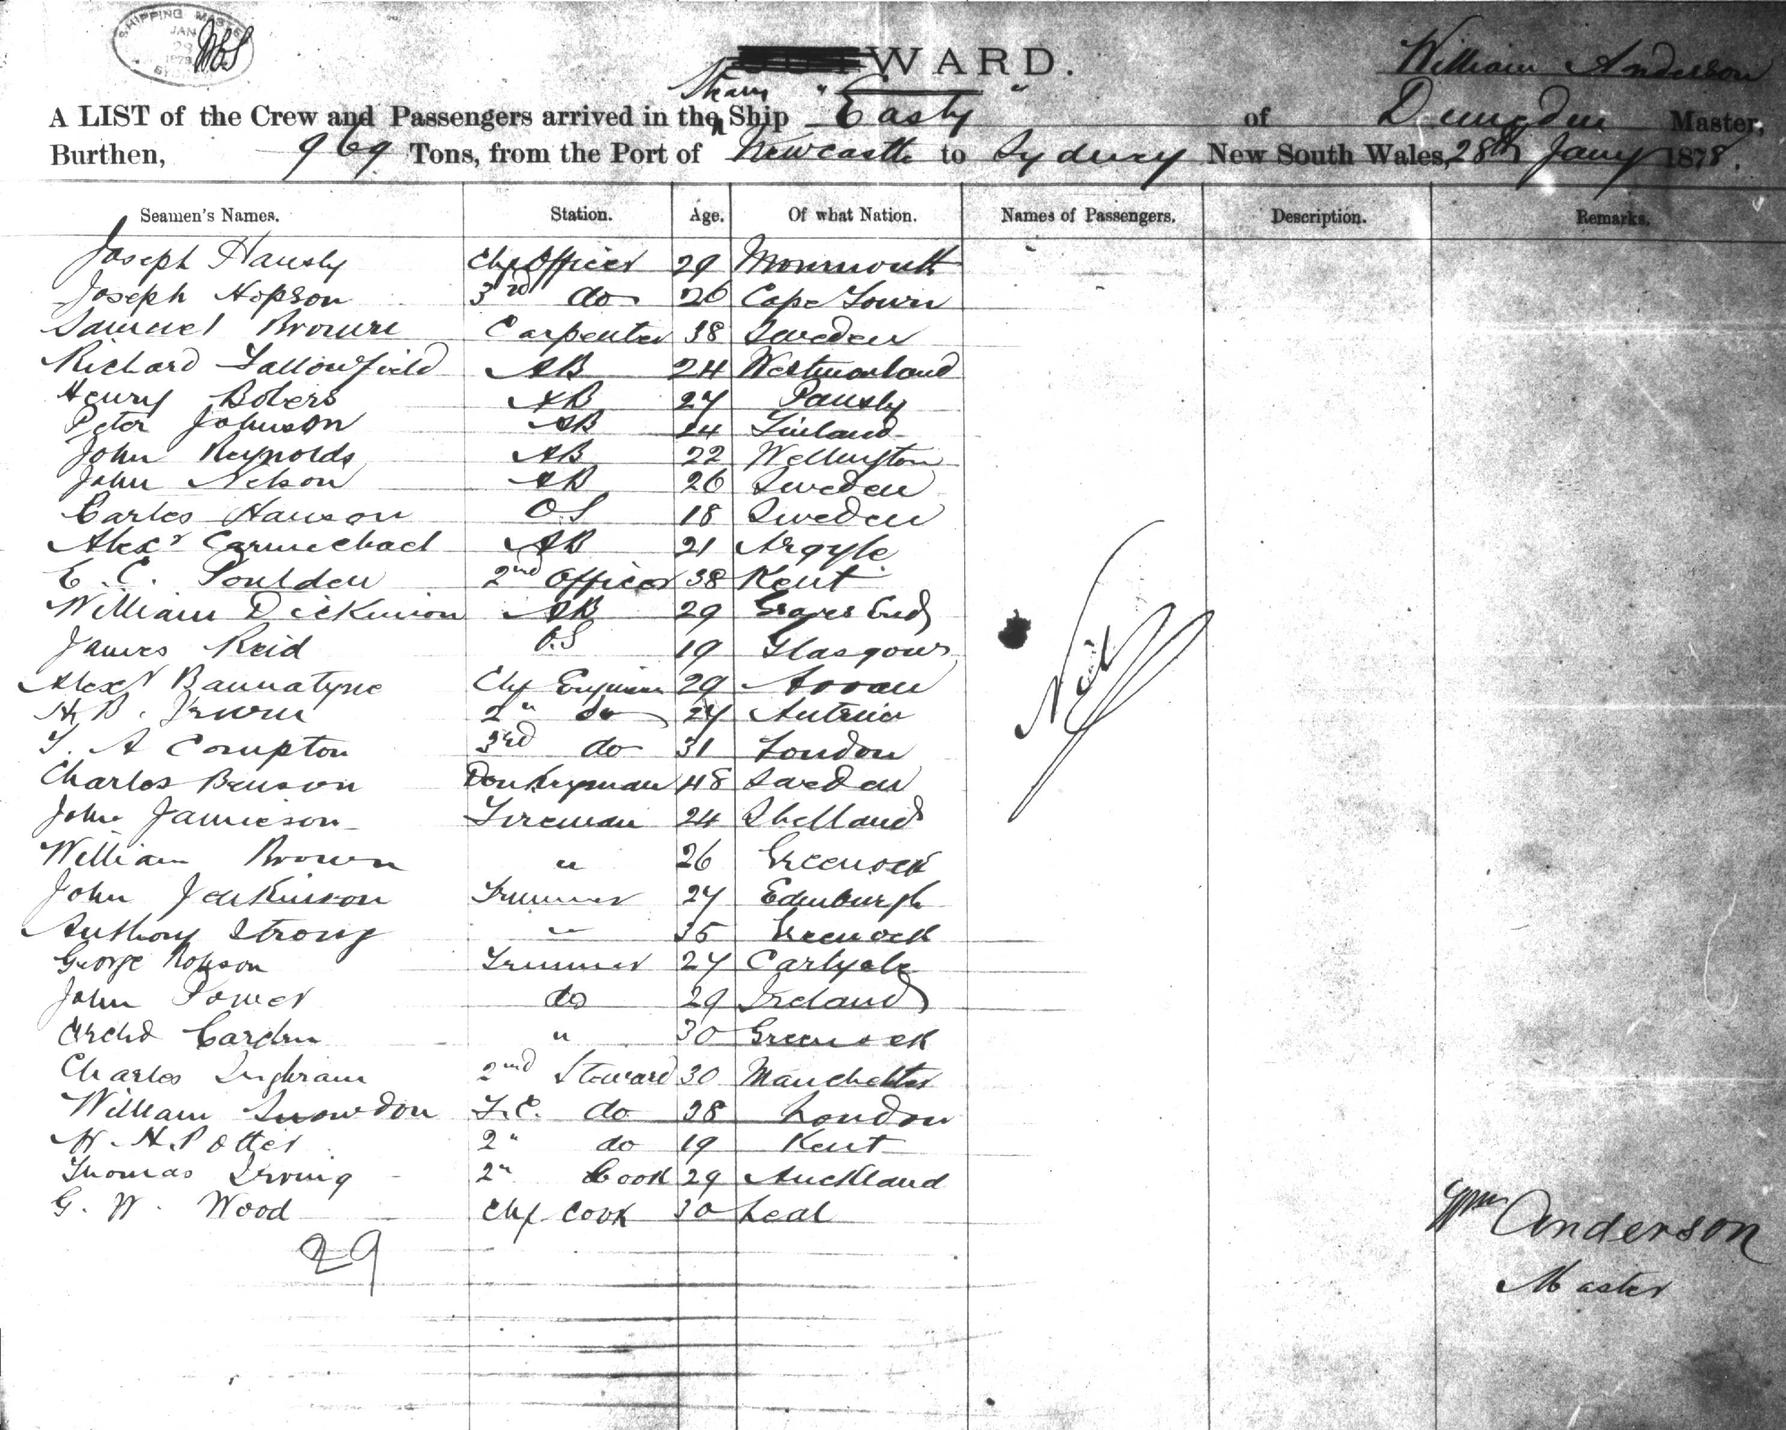 SHIPPING MASTER
JAN
28
1878
WARD.
William Anderson
Steam " Easby "
A LIST of the Crew and Passengers arrived in the Ship of Master,
Burthen, 969 Tons, from the Port of Newcastle to Sydney New South Wales, 28th Jany 1878.
Seamen's Names. Station. Age. Of what Nation. Names of Passengers. Description. Remarks.
Joseph Chf Officer 29 Monmouth
Joseph Hopson 3rd do 26 Cape Town
Samuel Browne Carpenter 38 Sweden
Richard Fallowfield AB 24 Westmorland
Henry AB 27
Peter Johnson AB 24 Finland
John Reynolds AB 22 Wellington
John Nelson AB 26 Sweden
Carles Hanson OS 18 Sweden
Alexr Carmichael AB 21 Argyle
E. C. Poulden 2nd Officer 38 Kent
William Dickinson AB 29 Graves End
James Reid OS 19 Glasgow
Alexr Bannatyne Chf Engineer 29 Arran
H. B. Irwin 2" do 27 Antrim
T. A Compton 3rd do 31 London
Charles Benson Donkeyman 48 Sweden
John Jamieson Fireman 24 Shetland
William Brown " 26 Greenock
John Trimmer 27 Edinburgh
Anthony Strong " 35 Greenock
George Robson Trimmer 27 Carlysle
John Power do 29 Ireland
Archd " 30 Greenock
Charles Inghram 2nd Steward 30 Manchester
William Snowdon F.C. do 28 London
H. Potter 2" do 19 Kent
Thomas Irving 2" Cook 29 Auckland
G. W. Wood Chf Cook 30
Nil
29
Wm Anderson
Master